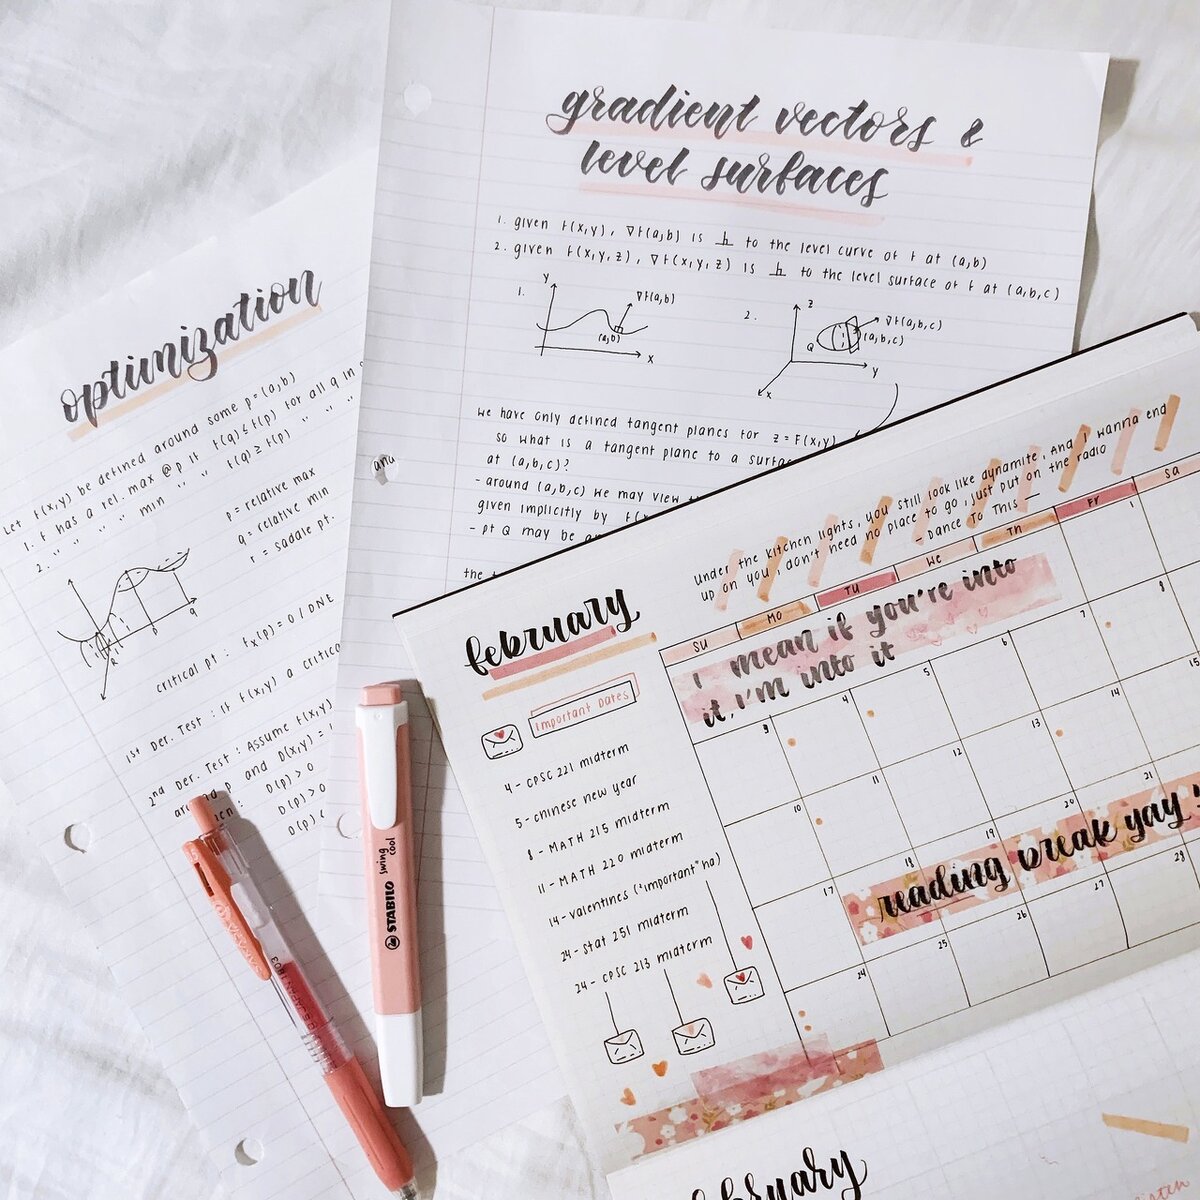 optimization
Let f(x,y) be defined around some p=(a,b)
1. f has a rel. max @ p if f(q) ≤ f(p) for all q in
2. " " " min " " f(q) ≥ f(p) " " "
p = relative max
q = relative min
r = saddle pt.
critical pt : fx(p) = 0 / DNE
1st Der. Test : if f(x,y) a critica
2nd Der. Test : Assume f(x,y)
p and D(x,y) =
D(p) > 0
D(p) > 0
D(p) <
gradient vectors &
level surfaces
1. given f(x,y), ∇f(a,b) is ⊥ to the level curve of f at (a,b)
2. given f(x,y,z), ∇f(x,y,z) is ⊥ to the level surface of f at (a,b,c)
1. y ∇f(a,b) (a,b) x
2. z ∇f(a,b,c) (a,b,c) Q y x
we have only defined tangent planes for z = F(x,y)
so what is a tangent plane to a surfa
at (a,b,c)?
- around (a,b,c) we may view
given implicitly by
- pt Q may be
the
february
Important Dates
4 - CPSC 221 midterm
5 - chinese new year
8 - MATH 215 midterm
11 - MATH 220 midterm
14 - valentines ("important" ha)
24 - stat 251 midterm
24 - CPSC 213 midterm
Under the kitchen lights, you still look like dynamite, and I wanna end
up on you, don't need no place to go, just put on the radio
- Dance To This
SU MO TU WE TH Fr Sa
i mean if you're into
it, i'm into it
1
3 4 5 6 7 8
10 11 12 13 14 15
17 18 19 20 21
24 25 26 27 28
reading break yay
STABILO swing cool
JAPAN
february